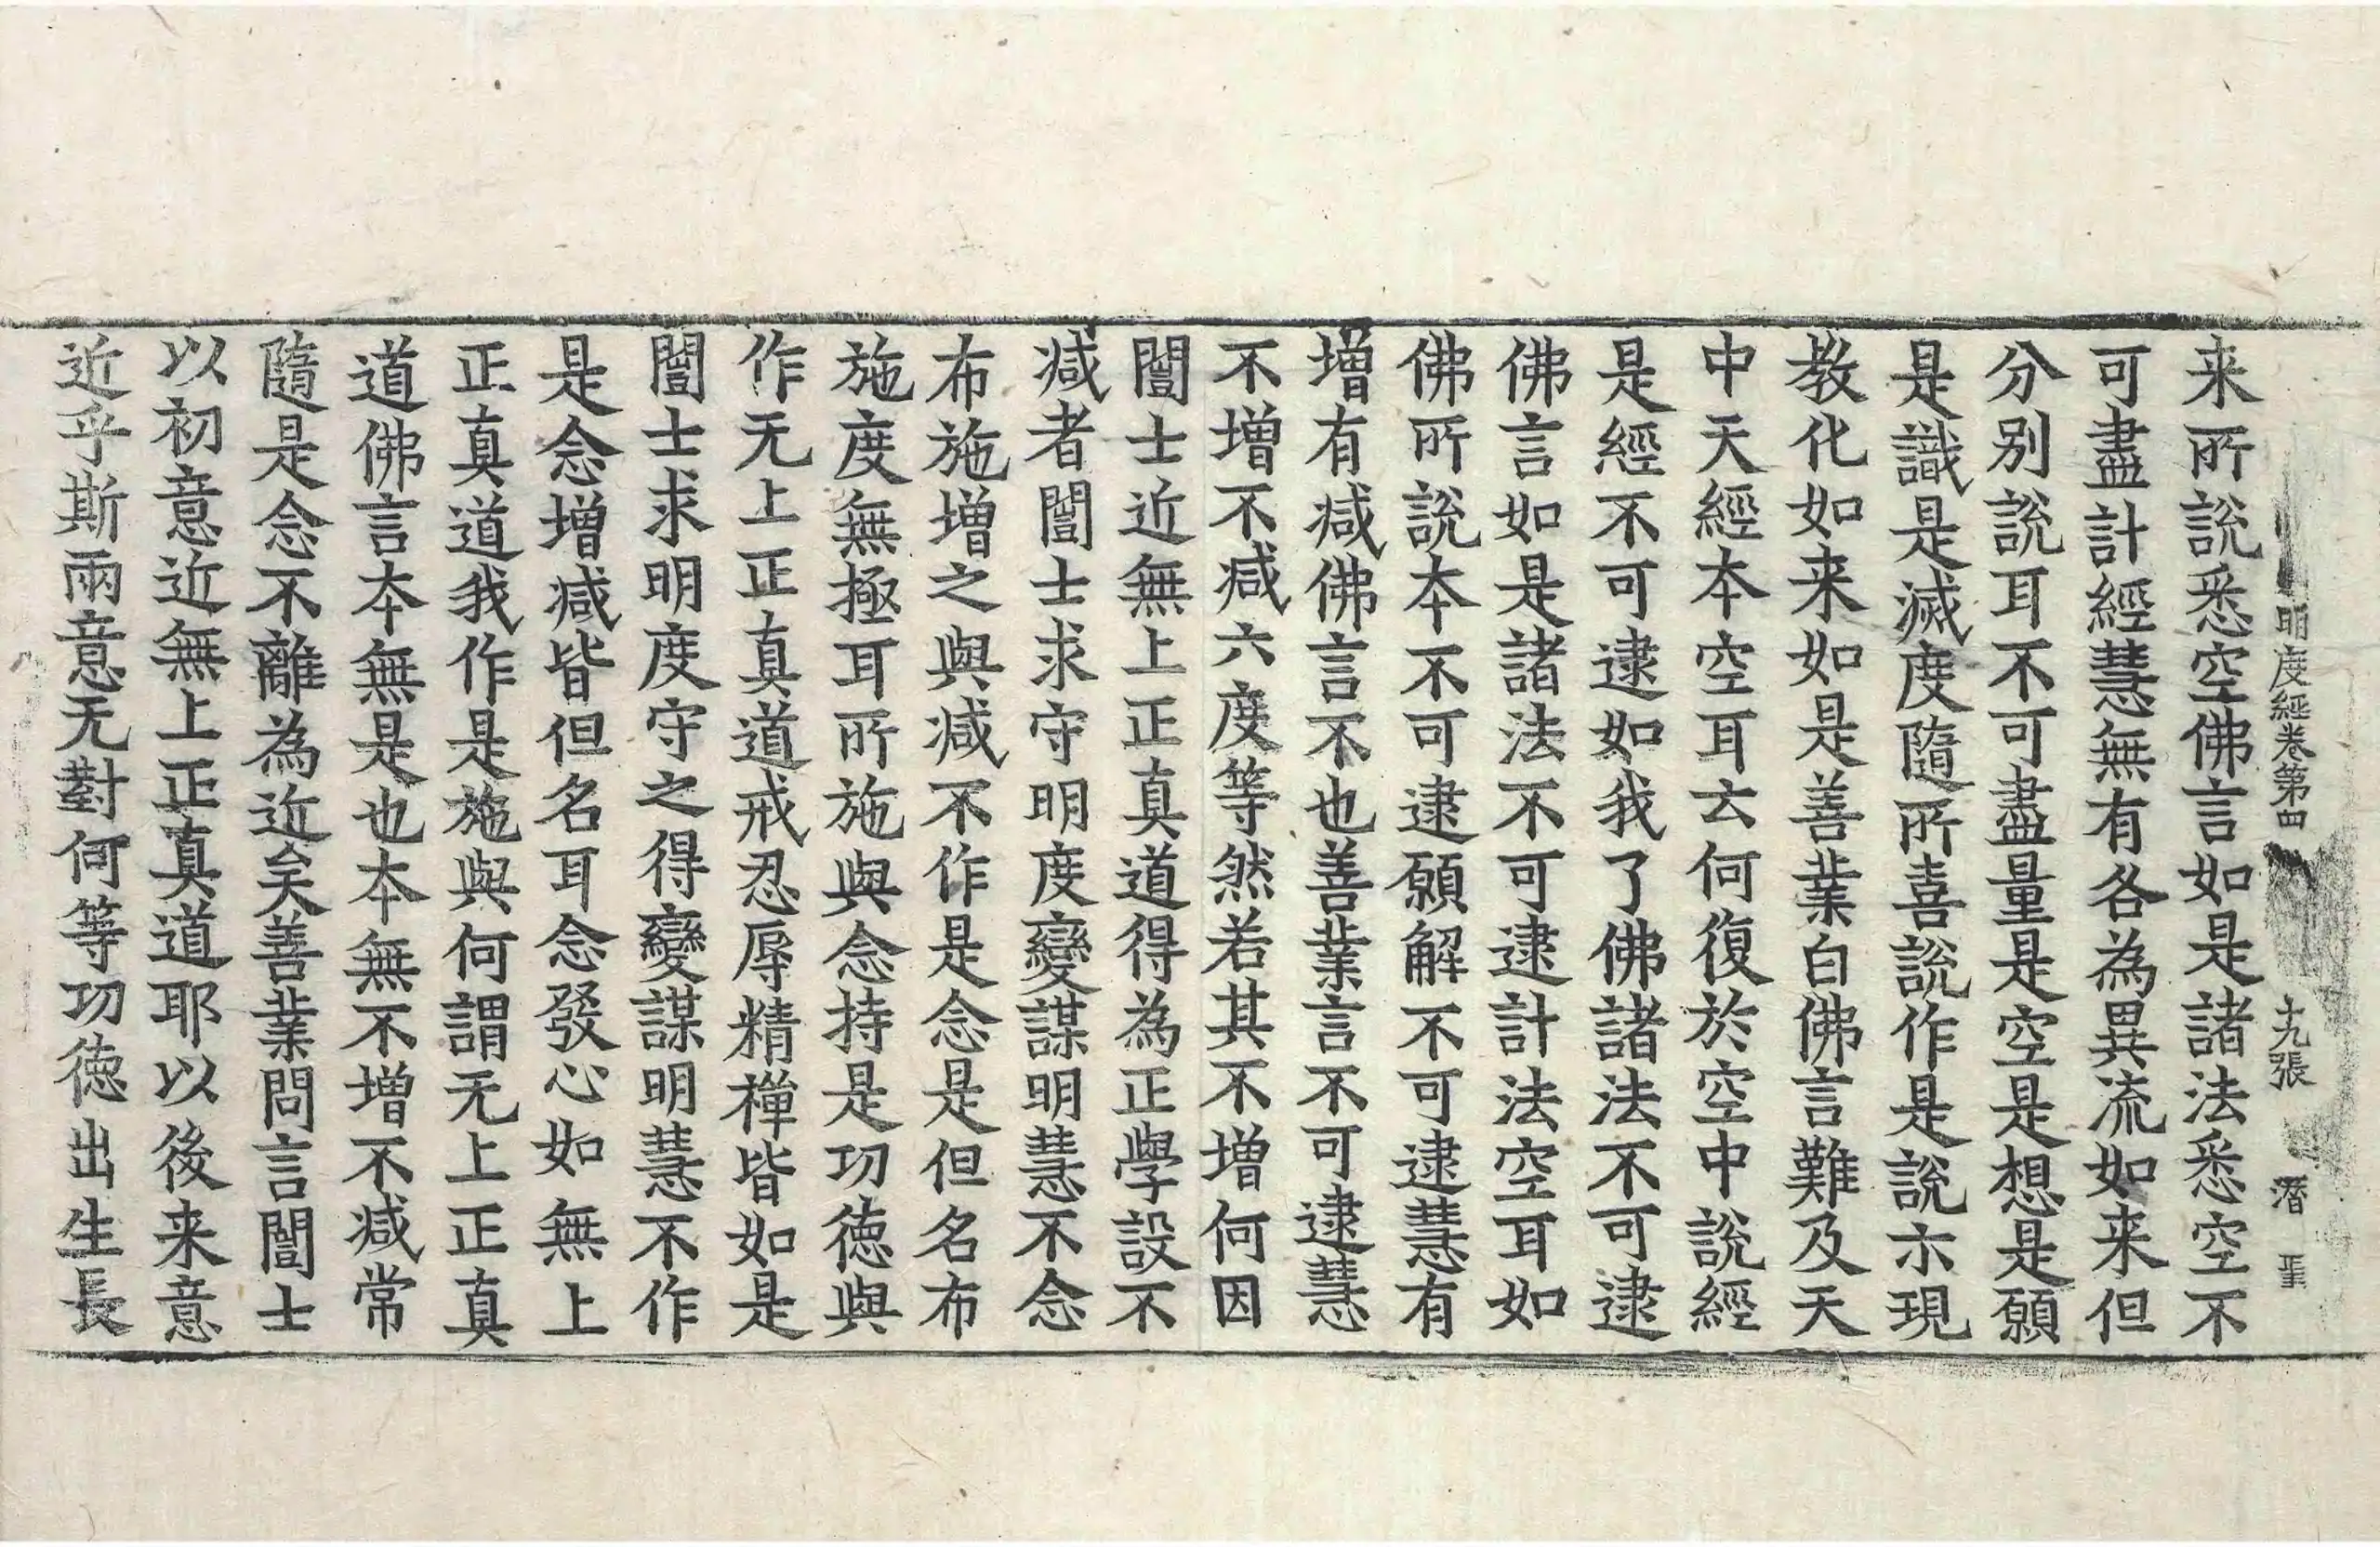 明度經卷第四 十九張 潛
来所說悉空佛言如是諸法悉空不
可盡計經慧無有各為異流如来但
分別說耳不可盡量是空是想是願
是識是滅度隨所喜說作是說示現
教化如来如是善業白佛言難及天
中天經本空耳云何復於空中說經
是經不可逮如我了佛諸法不可逮
佛言如是諸法不可逮計法空耳如
佛所說本不可逮願解不可逮慧有
增有減佛言不也善業言不可逮慧
不增不減六度等然若其不增何因
闓士近無上正真道得為正學設不
減者闓士求守明度變謀明慧不念
布施增之與減不作是念是但名布
施度無極耳所施與念持是功德與
作无上正真道戒忍辱精禪皆如是
闓士求明度守之得變謀明慧不作
是念增減皆但名耳念發心如無上
正真道我作是施與何謂无上正真
道佛言本無是也本無不增不減常
隨是念不離為近矣善業問言闓士
以初意近無上正真道耶以後来意
近乎斯兩意无對何等功德出生長